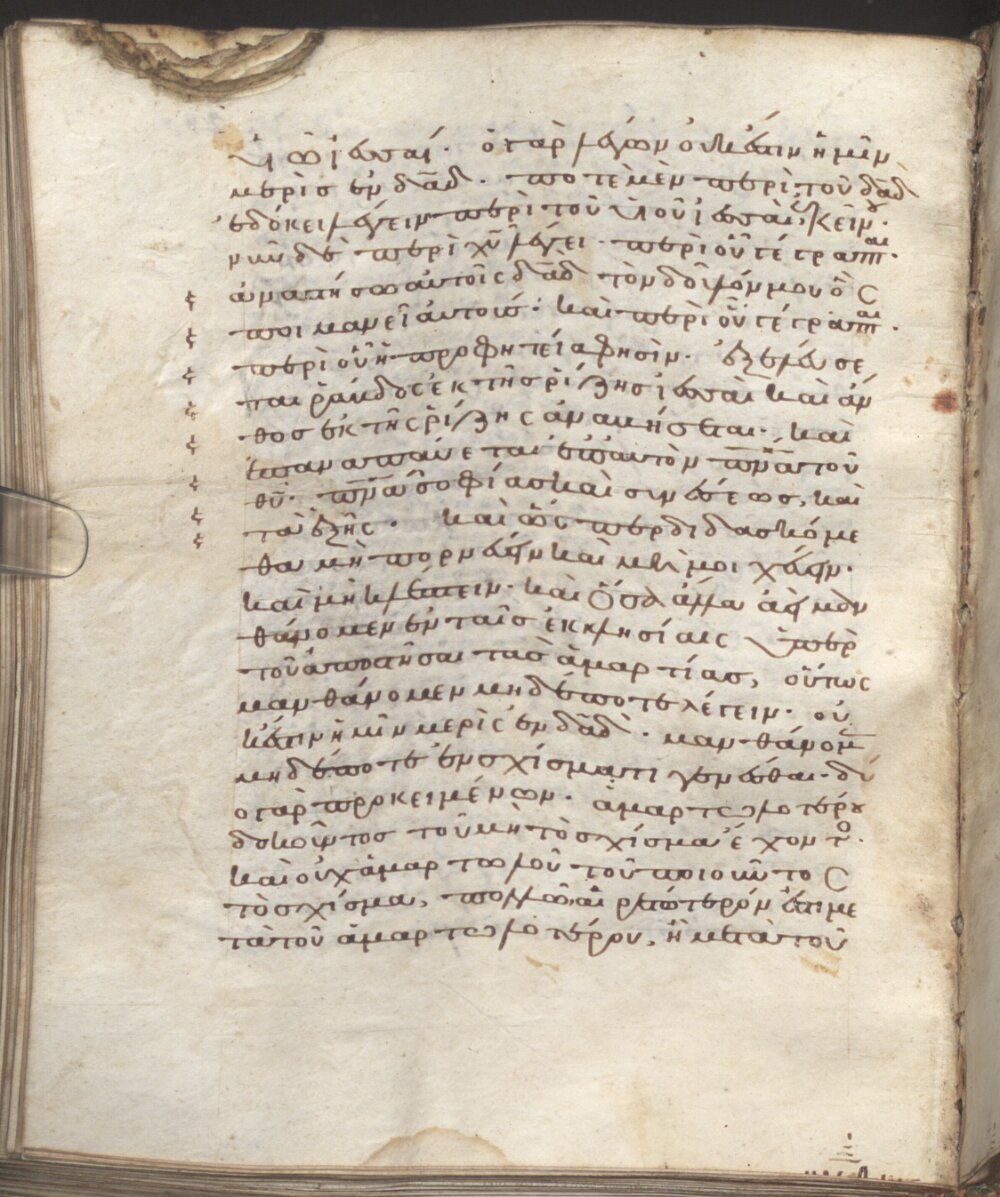 υἱῶ ἰεσσαί· ὁ γὰρ λέγων οὐκ ἔστιν ἡμῖν
μερὶς ἐν δᾱδ· ποτὲ μὲν περὶ τοῦ δᾱδ
ἐδόκει λέγειν περὶ τοῦ υἱοῦ ἰεσσαὶ ἐκείνου·
νῦν δὲ περὶ χῡ λέγει· περὶ οὗ γέγραπται·
ἀναστήσω αὐτοῖς δᾱδ τὸν δοῦλόν μου ὃς
ποιμανεῖ αὐτούς· καὶ περὶ οὗ γέγραπται·
περὶ οὗ ἡ προφητεία φησίν· ἐξελεύσε
ται ῥάβδος ἐκ τῆς ῥίζης ἰεσσαὶ καὶ ἄν
θος ἐκ τῆς ῥίζης ἀναβήσεται· καὶ
ἐπαναπαύεται ἐπ' αὐτὸν πν̄ᾱ τοῦ
θῡ· πν̄ᾱ σοφίας καὶ συνέσεως, καὶ
τὰ ἑξῆς· καὶ ὥσπερ διδασκόμε
θα μὴ πορνεύειν καὶ μὴ μοιχεύειν·
καὶ μὴ κλέπτειν· καὶ ὅσα ἄλλα μαν
θάνομεν ἐν ταῖς ἐκκλησίαις ὑπὲρ
τοῦ ἀποστῆσαι τὰς ἁμαρτίας, οὕτως
μανθάνομεν μηδέποτε λέγειν· οὐ
κ ἔστιν ἡμῖν μερὶς ἐν δᾱδ· μανθάνομεν
μηδέποτε ἐν σχίσματι γενέσθαι· δύ
ο γὰρ προκειμένων· ἁμαρτωλοτέρου
δοκοῦντος τοῦ μὴ τὸ σχίσμα ἔχοντος·
καὶ οὐχ ἁμαρτωλοῦ τοῦ ποιοῦντος
τὸ σχίσμα, πολλῶ αἱρετώτερόν ἐστι με
τὰ τοῦ ἁμαρτωλοτέρου, ἢ μετὰ τοῦ